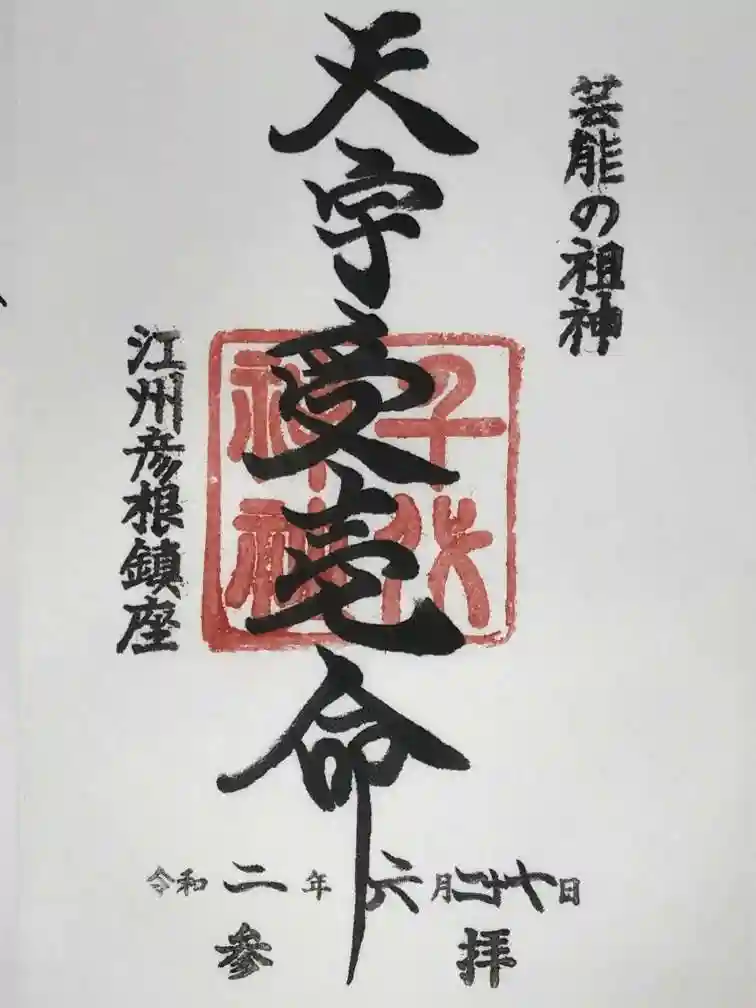 芸能の祖神
天宇受売命
千代
神社
江州彦根鎮座
令和二年六月二十七日
参拝